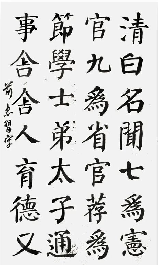 清白名聞七為憲
官九為省官荐為
節學士弟太子通
事舍舍人育德又